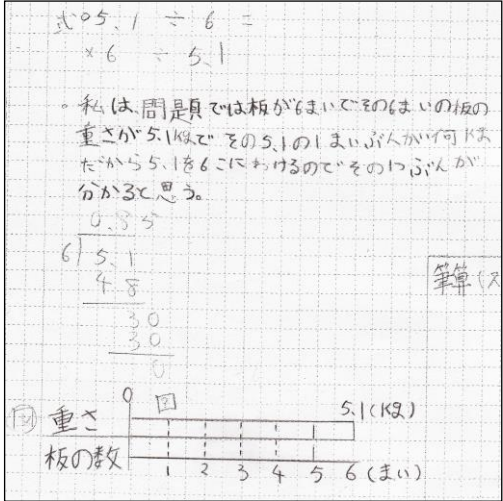 式○ 5.1 ÷ 6 =
× 6 ÷ 5.1
。私は、問題では板が6まいでその6まいの板の
重さが5.1kgで その5.1の1まいぶんが何kgま
だから5.1を6こにわけるのでその1つぶんが
分かると思う。
0.85
6)5.1
48
30
30
0
筆算(ス
0 ? 5.1(kg)
図 重さ
板の数 1 2 3 4 5 6 (まい)